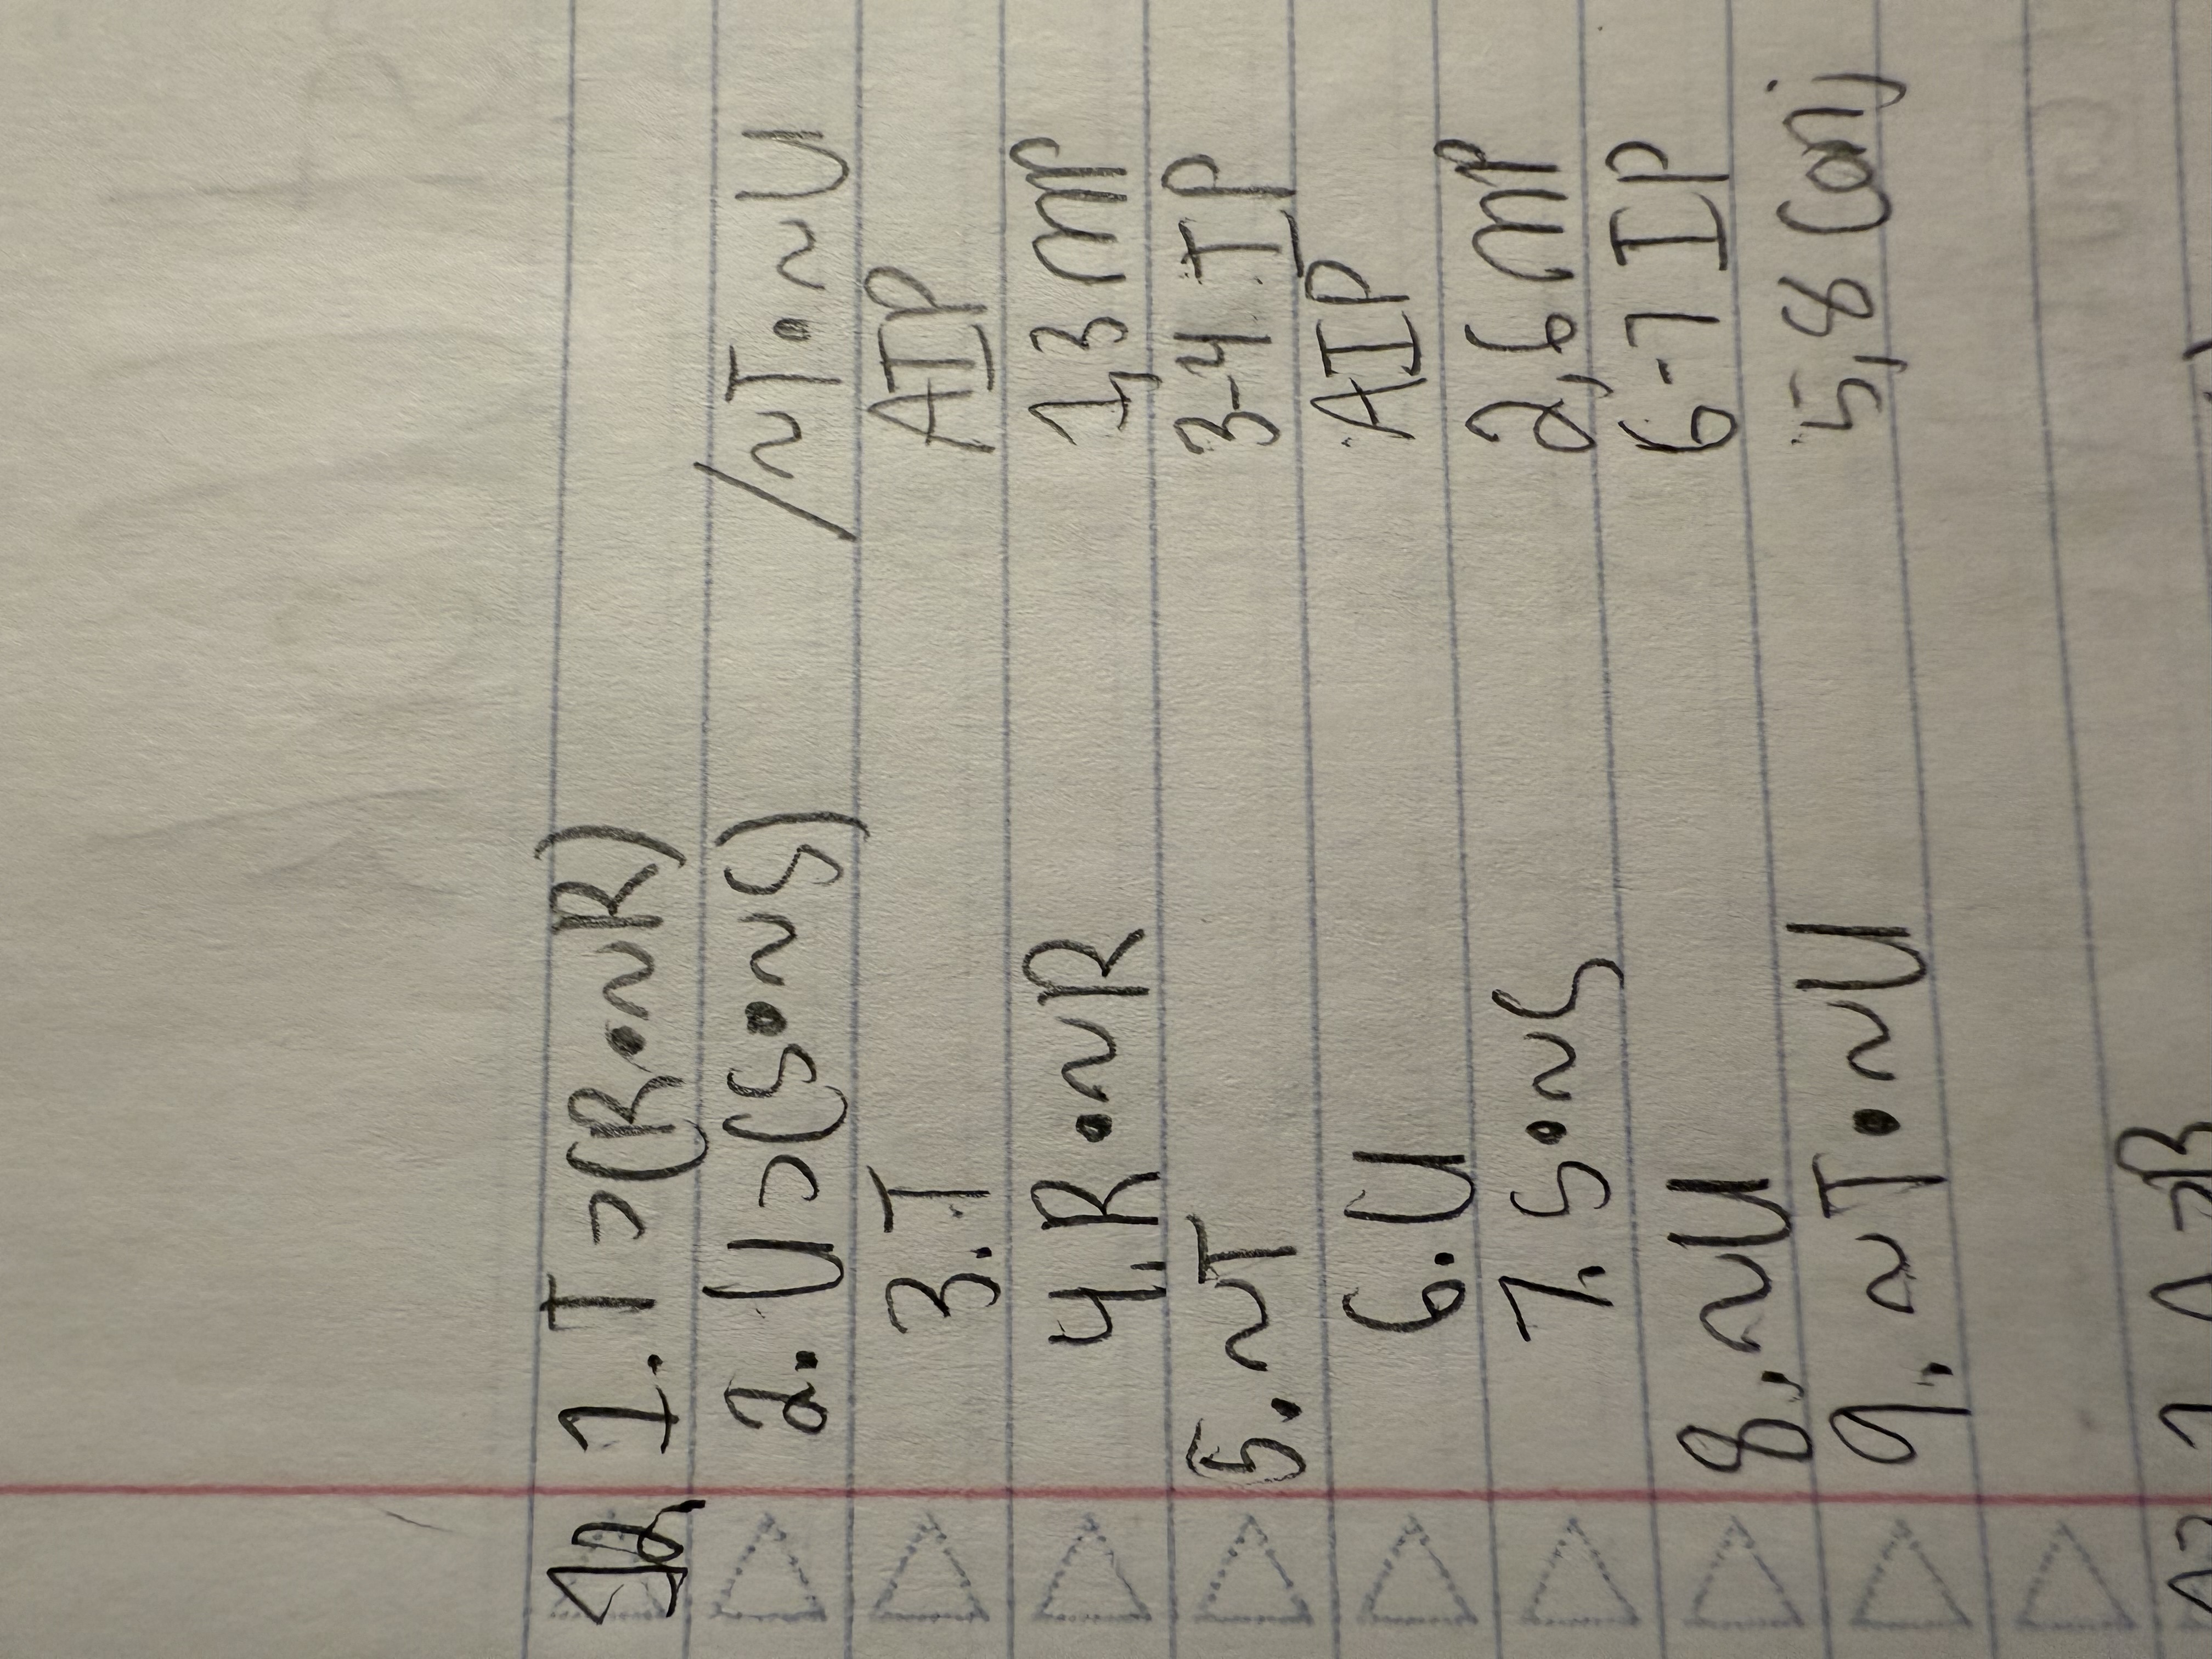 1. T ⊃ (R • ~R)
2. U ⊃ (S • ~S) / ~T • ~U
3. T AIP
4. R • ~R 1,3 MP
5. ~T 3-4 IP
6. U AIP
7. S • ~S 2,6 MP
8. ~U 6-7 IP
9. ~T • ~U 5,8 Conj